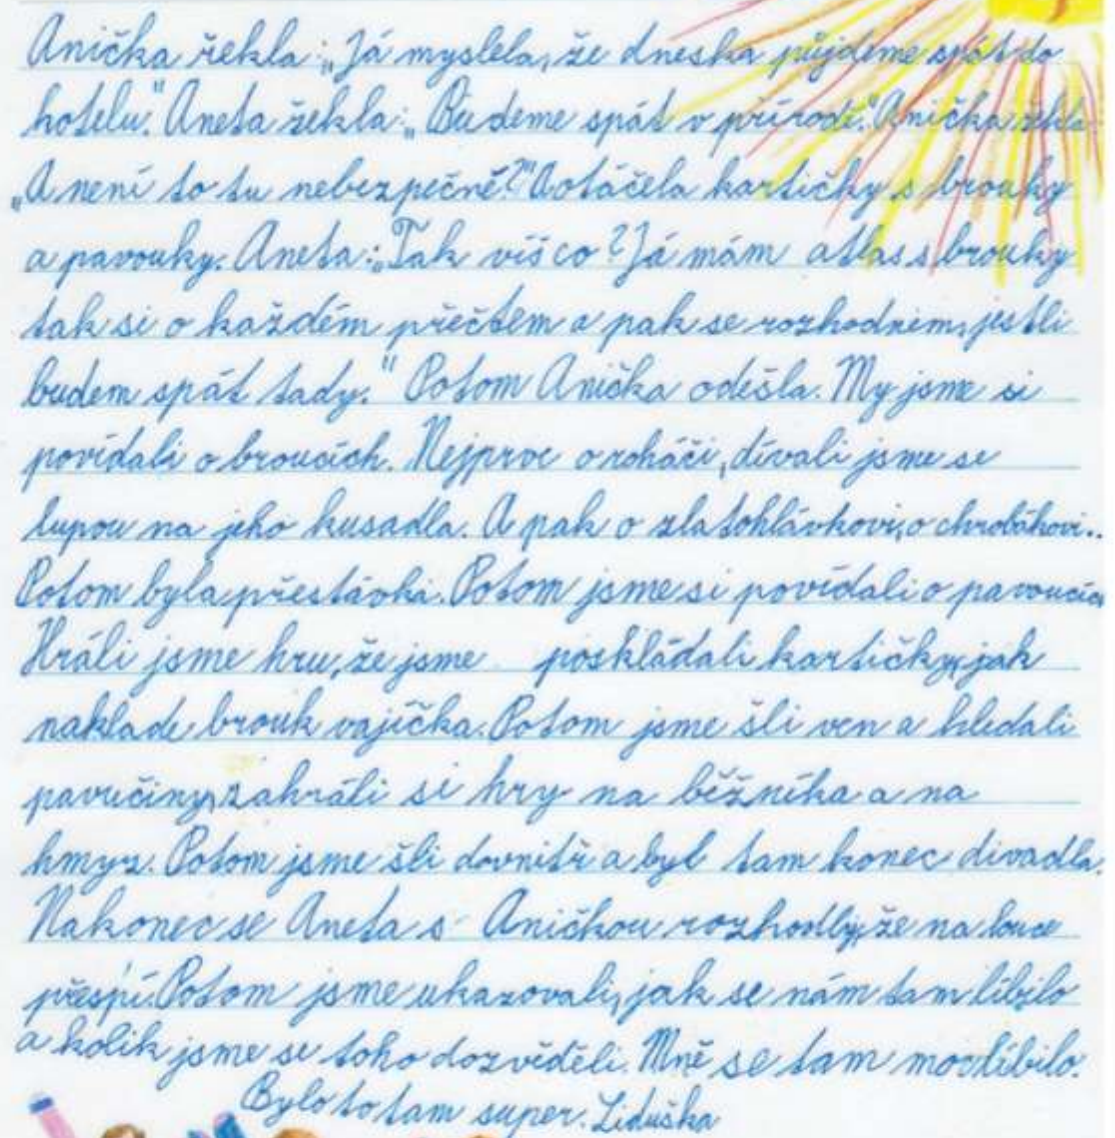 Anička řekla: „Já myslela, že dneska půjdeme spát do
hotelu." Aneta řekla: „Budeme spát v přírodě." Anička řekla
„A není to tu nebezpečné?" A otáčela kartičky s brouky
a pavouky. Aneta: „Tak víš co? Já mám atlas s brouky
tak si o každém přečtem a pak se rozhodnem, jestli
budem spát tady." Potom Anička odešla. My jsme si
povídali o broucích. Nejprve o roháči, dívali jsme se
lupou na jeho kusadla. A pak o zlatohlávkovi, o chrobákovi..
Potom byla přestávka. Potom jsme si povídali o pavoucích
Hráli jsme hru, že jsme poskládali kartičky, jak
naklade brouk vajíčka. Potom jsme šli ven a hledali
pavučiny, zahráli si hry na běžníka a na
hmyz. Potom jsme šli dovnitř a byl tam konec divadla.
Nakonec se Aneta s Aničkou rozhodly, že na louce
přespí. Potom jsme ukazovali, jak se nám tam líbilo
a kolik jsme se toho dozvěděli. Mně se tam moc líbilo.
Bylo to tam super. Liduška